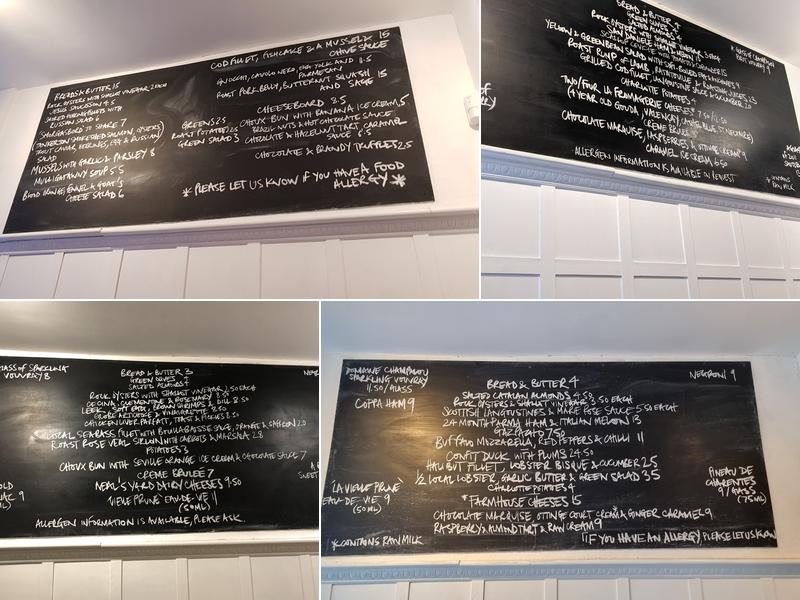 COD FILLET, FISHCAKE & A MUSSEL & 15
CHIVE SAUCE
GNOCCHI, CAVOLO NERO, EGG YOLK AND 11.5
PARMESAN
ROAST PORK BELLY, BUTTERNUT SQUASH 15
AND SAGE
BREADS & BUTTER
ROCK OYSTERS WITH SHALLOT VINEGAR 2 EACH
SAUCISSON 4.5
RUSSIAN SALAD
TO SHARE 7
SALAD
MUSSELS WITH GARLIC & PARSLEY 8
MULLIGATAWNY SOUP 5.5
BLOOD ORANGE, FENNEL & GOAT'S
CHEESE SALAD 6
GREENS 2.5
ROAST POTATO 2.5
GREEN SALAD 3
CHEESEBOARD 8.5
CHOUX BUN WITH BANANA ICE CREAM,
BRAZIL NUTS & HOT CHOCOLATE SAUCE
CHOCOLATE & HAZELNUT TART, CARAMEL
SAUCE 6.5
CHOCOLATE & BRANDY TRUFFLES 2.5
* PLEASE LET US KNOW IF YOU HAVE A FOOD
ALLERGY *
BREAD & BUTTER 4
GREEN OLIVES
SALTED ALMONDS 4
ROCK OYSTERS WITH SHALLOT VINEGAR
SAN DANIELE HAM &
YELLOW & GREEN BEAN SALAD WITH
ROAST RUMP OF LAMB, RATATOUILLE &
GRILLED COD FILLET,
CHARLOTTE POTATOES 4
TWO/FOUR LA FROMAGERIE CHEESES 7.50/11.50
(4 YEAR OLD GOUDA, VALENCAY,
CRÈME BRULEE 7
CHOCOLATE MARQUISE, RASPBERRIES & CREAM 9
CARAMEL ICE CREAM 6.50
ALLERGEN INFORMATION IS AVAILABLE ON REQUEST
GLASS OF SPARKLING
VOUVRAY 8
BREAD & BUTTER 3
GREEN OLIVES
SALTED ALMONDS 4
ROCK OYSTERS WITH SHALLOT VINEGAR 2.50 EACH
CECINA, CLEMENTINE & ROSEMARY 8.50
LEEK, SOFT EGG, BROWN SHRIMPS & DILL 8.50
GLOBE ARTICHOKE & VINAIGRETTE 8.50
CHICKEN LIVER PARFAIT, TOAST & PICKLES 8.50
LOCAL SEABASS FILLET WITH BOUILLABAISSE SAUCE, PRAWNS & SAFFRON 20
ROAST ROSE VEAL SIRLOIN WITH CARROTS & MARSALA 28
POTATOES 3
CHOUX BUN WITH SEVILLE ORANGE ICE CREAM & CHOCOLATE SAUCE 7
CRÈME BRULEE 7
NEAL'S YARD DAIRY CHEESES 9.50
VIEILLE PRUNE EAU-DE-VIE 11
(50ML)
ALLERGEN INFORMATION IS AVAILABLE, PLEASE ASK.
DOMAINE CHAMPALOU
SPARKLING VOUVRAY
11.50/GLASS
NEGRONI 9
COPPA HAM 9
BREAD & BUTTER 4
SALTED CATALAN ALMONDS 4.50
ROCK OYSTERS & SHALLOT VINEGAR 3.50 EACH
SCOTTISH LANGOUSTINES & MARIE ROSE SAUCE 5.50 EACH
24 MONTH PARMA HAM & ITALIAN MELON 13
GAZPACHO 7.50
BUFFALO MOZZARELLA, RED PEPPERS & CHILLI 11
CONFIT DUCK WITH PLUMS 24.50
HALIBUT FILLET, LOBSTER BISQUE & CUCUMBER 25
1/2 LOCAL LOBSTER, GARLIC BUTTER & GREEN SALAD 35
CHARLOTTE POTATOES 4
* FARMHOUSE CHEESES 15
CHOCOLATE MARQUISE, OTTINGE COURT CREAM & GINGER CARAMEL 9
RASPBERRY & ALMOND TART & RAW CREAM 9
'LA VIEILLE PRUNE'
EAU-DE-VIE 9
(50ML)
PINEAU DE
CHARENTES
9/GLASS
(75ML)
*CONTAINS RAW MILK
!! IF YOU HAVE AN ALLERGY PLEASE LET US KNOW